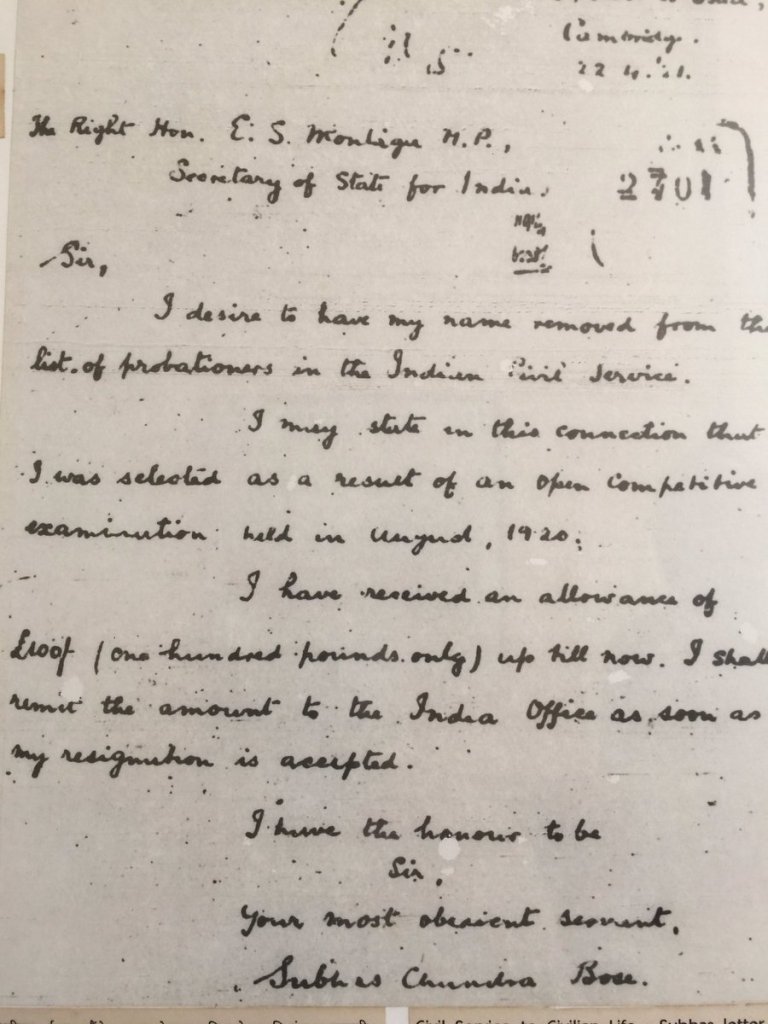 Cambridge.
22.4.21.
The Right Hon. E. S. Montagu M.P.,
Secretary of State for India.
2701
Sir,
I desire to have my name removed from the
list of probationers in the Indian Civil Service.
I may state in this connection that
I was selected as a result of an open competitive
examination held in August, 1920.
I have received an allowance of
£100/- (one hundred pounds only) up till now. I shall
remit the amount to the India Office as soon as
my resignation is accepted.
I have the honour to be
Sir,
Your most obedient servant,
Subhas Chandra Bose.
Civil Service to Civilian Life - Subhas letter